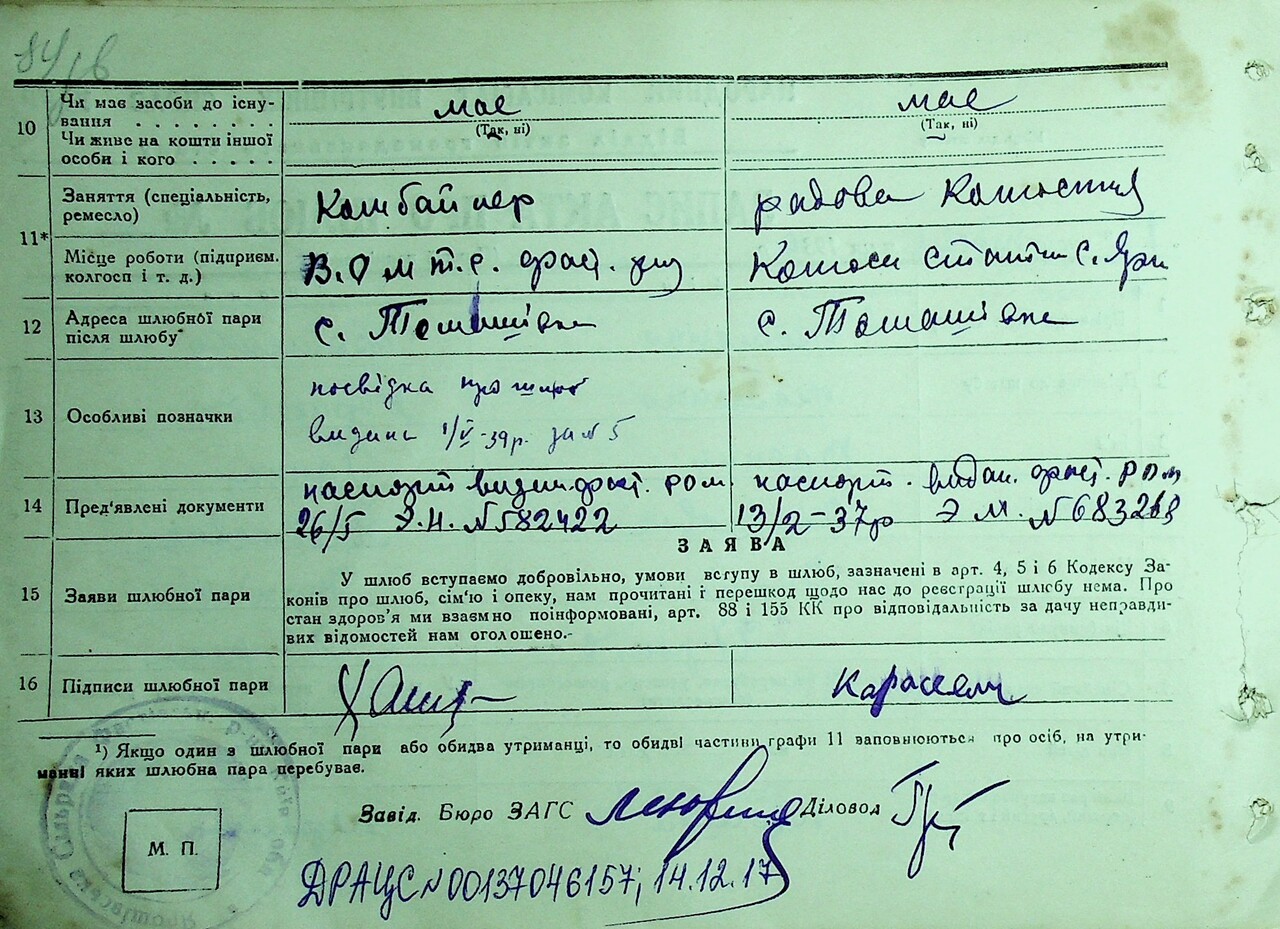 84/16
10
Чи має засоби до існу-
вання . . . . . . . .
має
(Так, ні)
має
(Так, ні)
Чи живе на кошти іншої
особи і кого . . . . .
11*
Заняття (спеціальність,
ремесло)
Комбайнер
рядова
Місце роботи (підприєм.
колгосп і т. д.)
В.О м т.с. фаст.
с.
12
Адреса шлюбної пари
після шлюбу
с. Томашівка
с. Томашівка
13
Особливі позначки
посвідка про шлюб
видана 1/V-39р. за № 5
14
Пред'явлені документи
паспорт видан фаст. РОМ
26/5 Э.Н. № 582422
паспорт. видан. фаст. РОМ
13/2-37р Э М. №
ЗАЯВА
15
Заяви шлюбної пари
У шлюб вступаємо добровільно, умови вступу в шлюб, зазначені в арт. 4, 5 і 6 Кодексу За-
конів про шлюб, сім'ю і опеку, нам прочитані і перешкод щодо нас до реєстрації шлюбу нема. Про
стан здоров'я ми взаємно поінформовані, арт. 88 і 155 КК про відповідальність за дачу неправди-
вих відомостей нам оголошено.-
16
Підписи шлюбної пари
¹) Якщо один з шлюбної пари або обидва утриманці, то обидві частини графи 11 заповнюються про осіб, на утри-
манні яких шлюбна пара перебуває.
Завід. Бюро ЗАГС
Діловод
М. П.
ДРАЦС №00137046157; 14.12.17